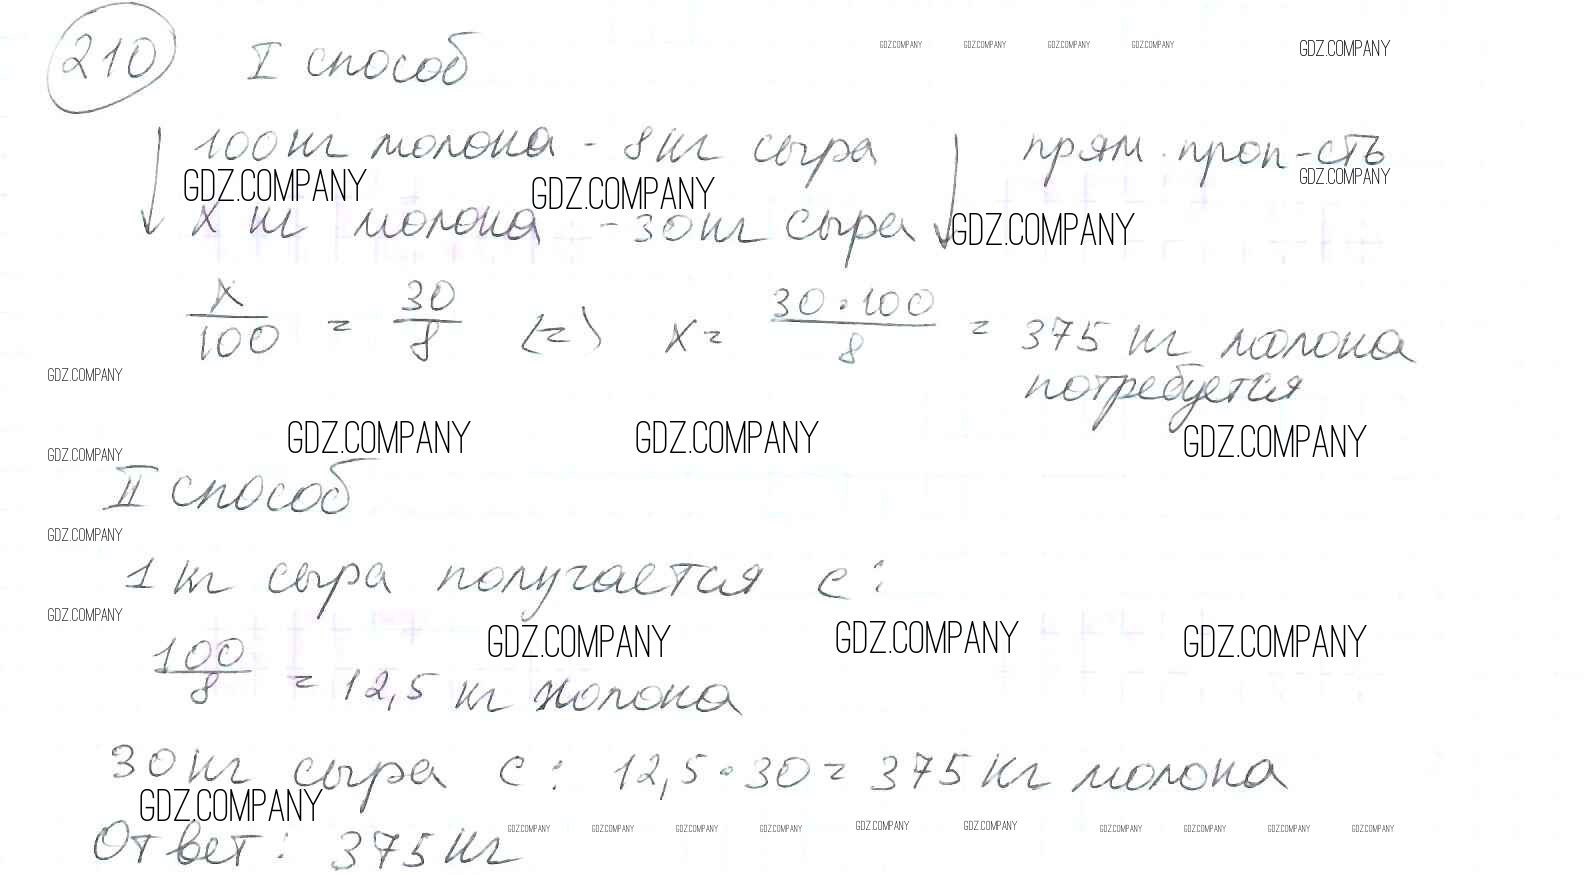 210 I способ
GDZ.COMPANY GDZ.COMPANY GDZ.COMPANY GDZ.COMPANY GDZ.COMPANY
100 кг молока - 8 кг сыра прям. проп-сть
GDZ.COMPANY GDZ.COMPANY GDZ.COMPANY
x кг молока - 30 кг сыра GDZ.COMPANY
x/100 = 30/8 (=) x = 30·100/8 = 375 кг молока
потребуется
GDZ.COMPANY
GDZ.COMPANY GDZ.COMPANY GDZ.COMPANY
GDZ.COMPANY
II способ
GDZ.COMPANY
1 кг сыра получается с:
GDZ.COMPANY
GDZ.COMPANY GDZ.COMPANY GDZ.COMPANY
100/8 = 12,5 кг молока
30 кг сыра с: 12,5·30 = 375 кг молока
GDZ.COMPANY
GDZ.COMPANY GDZ.COMPANY GDZ.COMPANY GDZ.COMPANY GDZ.COMPANY GDZ.COMPANY GDZ.COMPANY GDZ.COMPANY GDZ.COMPANY GDZ.COMPANY
Ответ: 375 кг